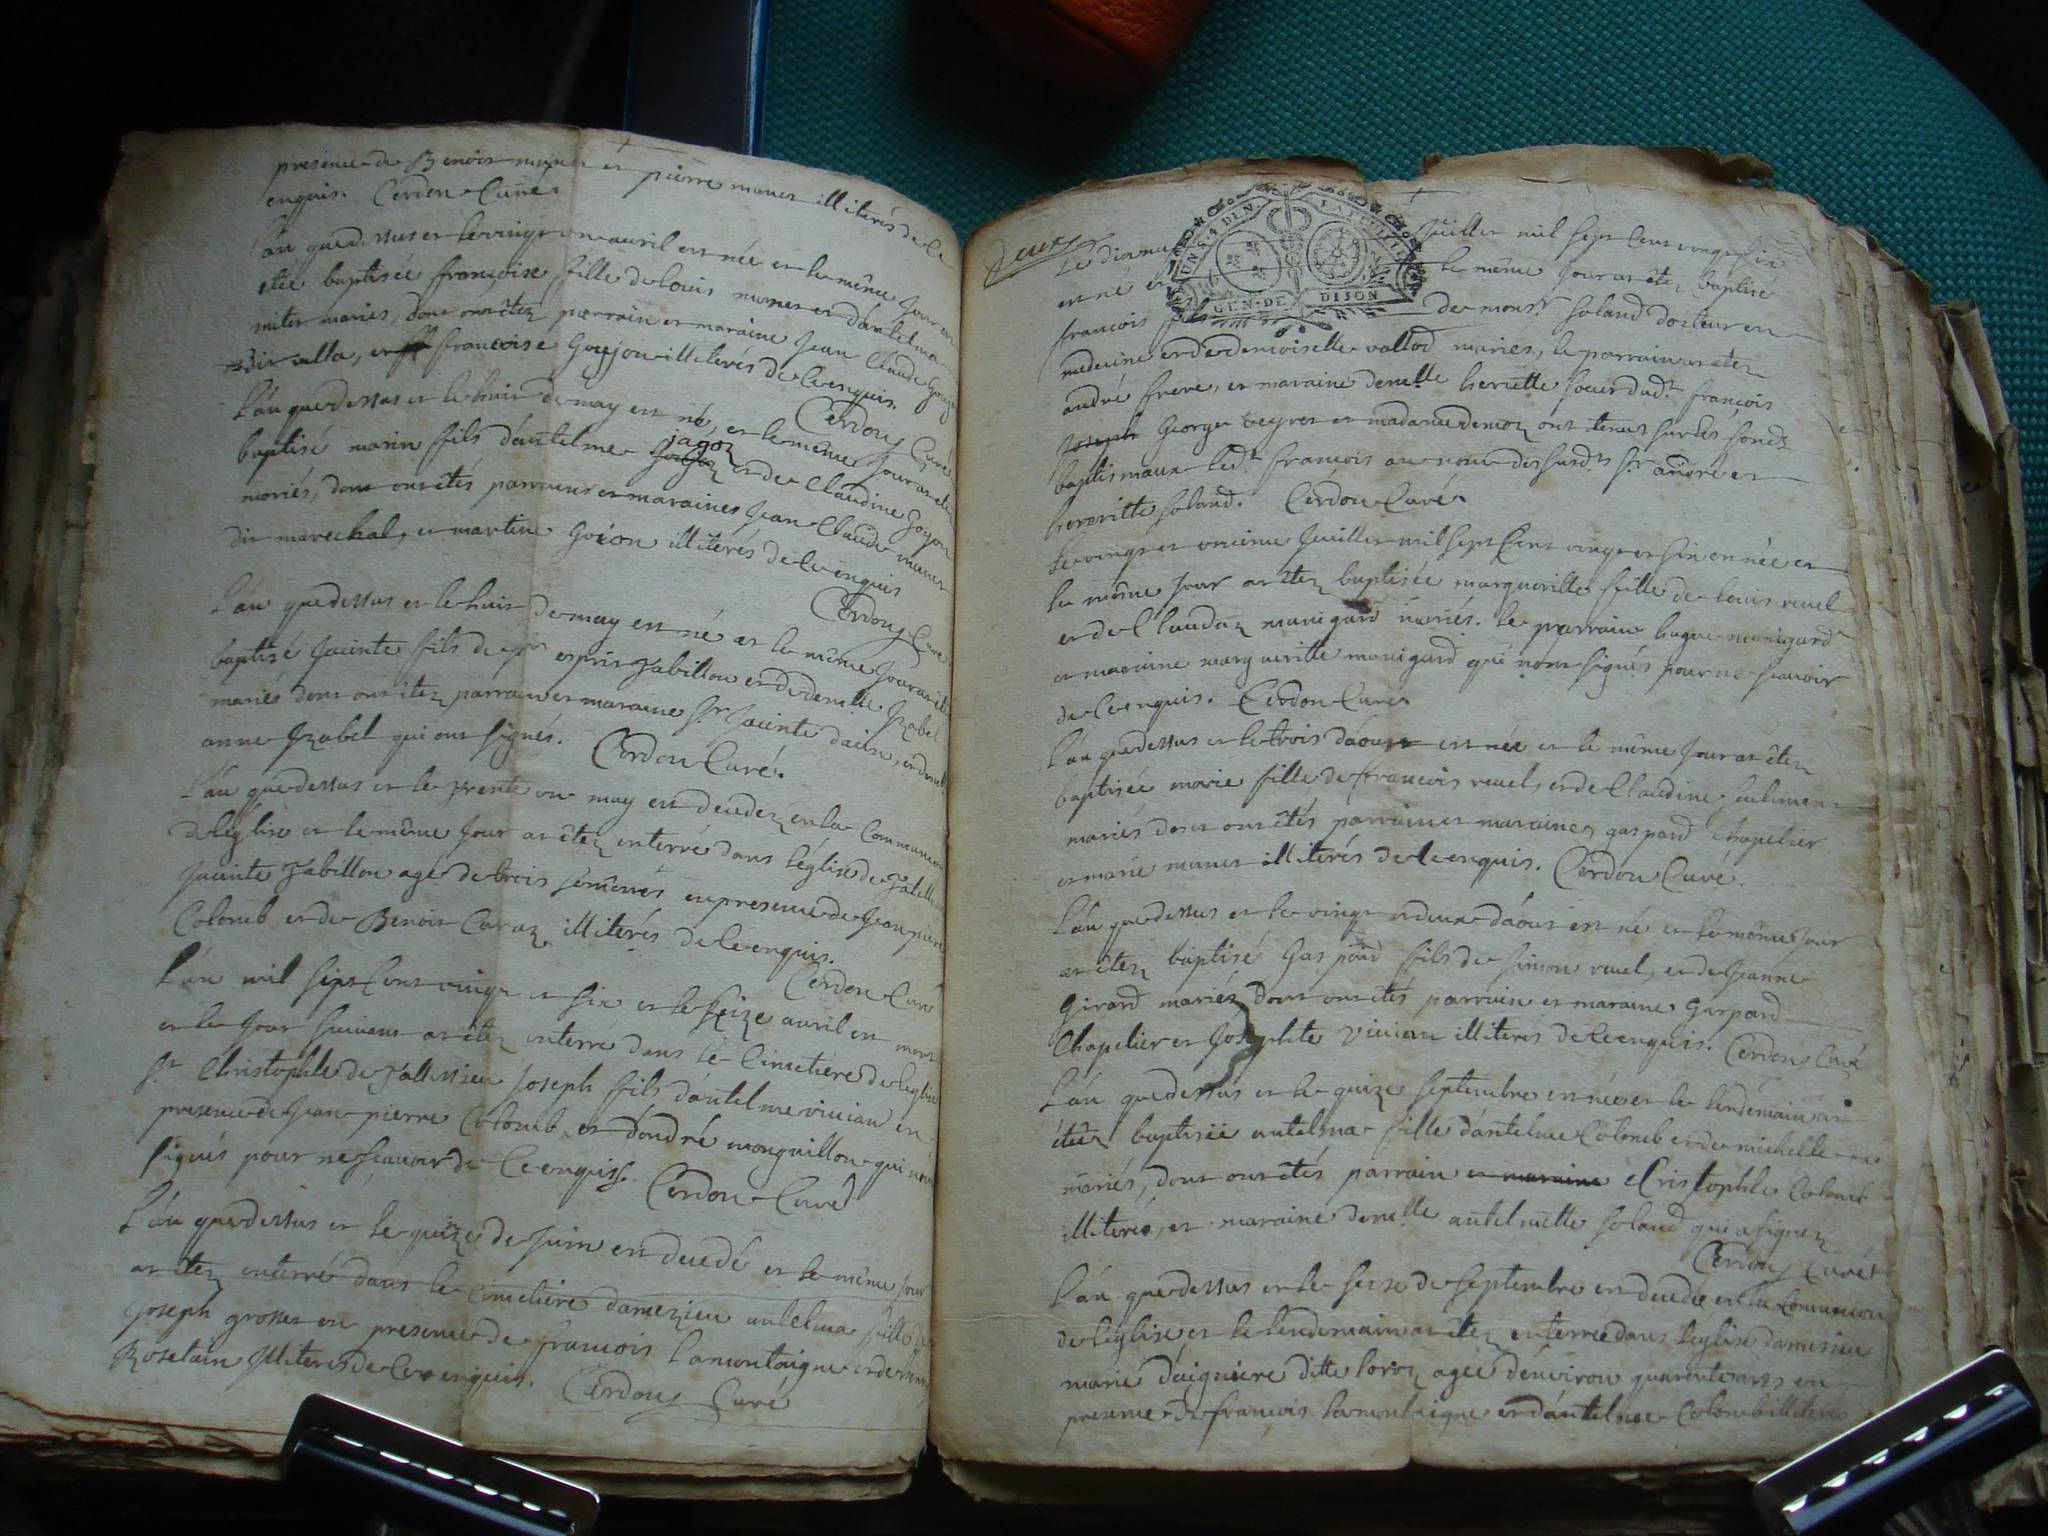 presence de Benoit munet et pierre munet illiterés de ce
enquis. Cerdon Curé
L'an que dessus et le vingt un avril est née et le même jour
etée baptisée françoise fille de louis munet et d'antelma
mites mariés, dont ont êtez parrain et maraine Jean Claude
dit alla, et françoise Goujon illiterés de ce enquis.
Cerdon Curé
L'an que dessus et le huit de may est né, et le même jour at etez
baptisé marin fils d'antelme jagoz et de Claudine Goyon
mariés, dont ont étés parrains et maraines Jean Claude munet
dit marechal, et martine Goion illiterés de ce enquis
Cerdon Curé
L'an que dessus et le huit de may est né et le même jour at êté
baptisé Jacinte fils de sr esprit Zabillon et de demlle Izabel
mariés dont ont êtez parrain et maraine Sr Jacinte d'aein, et demlle
anne Izabel qui ont signés. Cerdon Curé.
L'an que dessus et le trente un may est decedez en la Communion
de l'église et le même jour at êtez enterré dans l'église de
Jacinte Zabillon agé de trois semenes en presence de Jean pierre
Colomb et de Benoit Caraz illiterés de ce enquis.
Cerdon Curé
L'an mil sept Cent vingt et six et le seize avril est mort
et le jour suivant at êtez enterré dans le Cimetiere de l'eglise
St Christophle de Joseph fils d'antelme vivian en
presence de Jean pierre Colomb et d'andré monguillon qui n'ont
signés pour ne scavoir de ce enquis. Cerdon Curé
L'an que dessus et le quinze de Juin est decedé et le même jour
at êtez enterré dans le Cimetière d'amezieu antelma fille de
Joseph grosset en presence de francois lamontaigne et de
Rosetain illiteres de ce enquis. Cerdon Curé
Le dixneu Juillet mil sept Cent vingt six
est né et le même jour at êtez baptisé
GEN. DE DIJON
francois fils de monsr Soland docteur en
medecine et de demoiselle vallod mariés, le parrain at etez
andré frere, et maraine demlle heriette soeur dudt françois
Joseph George veyret et madame demoz ont tenus sur les fonds
baptismaux ledt francois au nom desusdts sr andré et
heroritte Soland. Cerdon Curé.
Le vingt et unieme Juillet mil sept Cent vingt et six est née et
le même jour at êtez baptisée marguerille fille de louis revel
et de Claudaz manigard mariés. le parrain hugue manigard
et maraine marguerille manigard qui n'ont signés pour ne scavoir
de ce enquis. Cerdon Curé.
L'an que dessus et le trois d'aoust est née et le même jour at êtez
baptisée marie fille de francois revel, et de Claudine
mariés dont ont êtés parrain et maraines gaspard Chapelier
et marie munet illiterés de ce enquis. Cerdon Curé.
L'an que dessus et le vingt et deux d'aoust est né et le même jour
at êtez baptisé Gaspard fils de Simon revel, et de Jeanne
Girard mariés dont ont êtés parrain et maraine Gaspard
Chapelier et Josephte vivian illiterés de ce enquis. Cerdon Curé
L'an que dessus et le quinze septembre est née et le lendemain at
êtez baptisée antelma fille d'antelme Colomb et de michelle
mariés, dont ont êtés parrain et maraine Cristophle Colomb
illiteré, et maraine demlle antelmette Soland qui a signez
Cerdon Curé
L'an que dessus et le seize de septembre est decedée en la Comunion
de l'église et le lendemain at êtez enterrée dans l'église d'amesieu
marie d'aiguiere ditte loroz agée d'environ quarente ans en
presence de françois lamontaigne et d'antelme Colomb illiterés